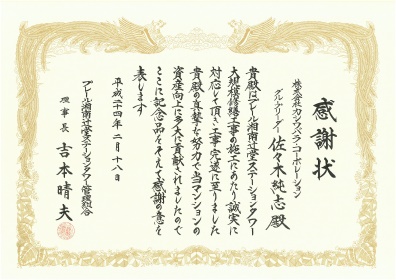 感謝状
株式会社カシワバラ・コーポレーション
グループリーダー 佐々木純志殿
貴殿はプレール湘南辻堂ステーションタワー
大規模修繕工事の施工にあたり誠実に
対応して頂き工事完遂に至りました
貴殿の真摯な努力で当マンションの
資産向上に多大に貢献されましたので
ここに記念品をそえて感謝の意を
表します
平成二十四年二月十八日
プレール湘南辻堂ステーションタワー管理組合
理事長 吉本晴夫